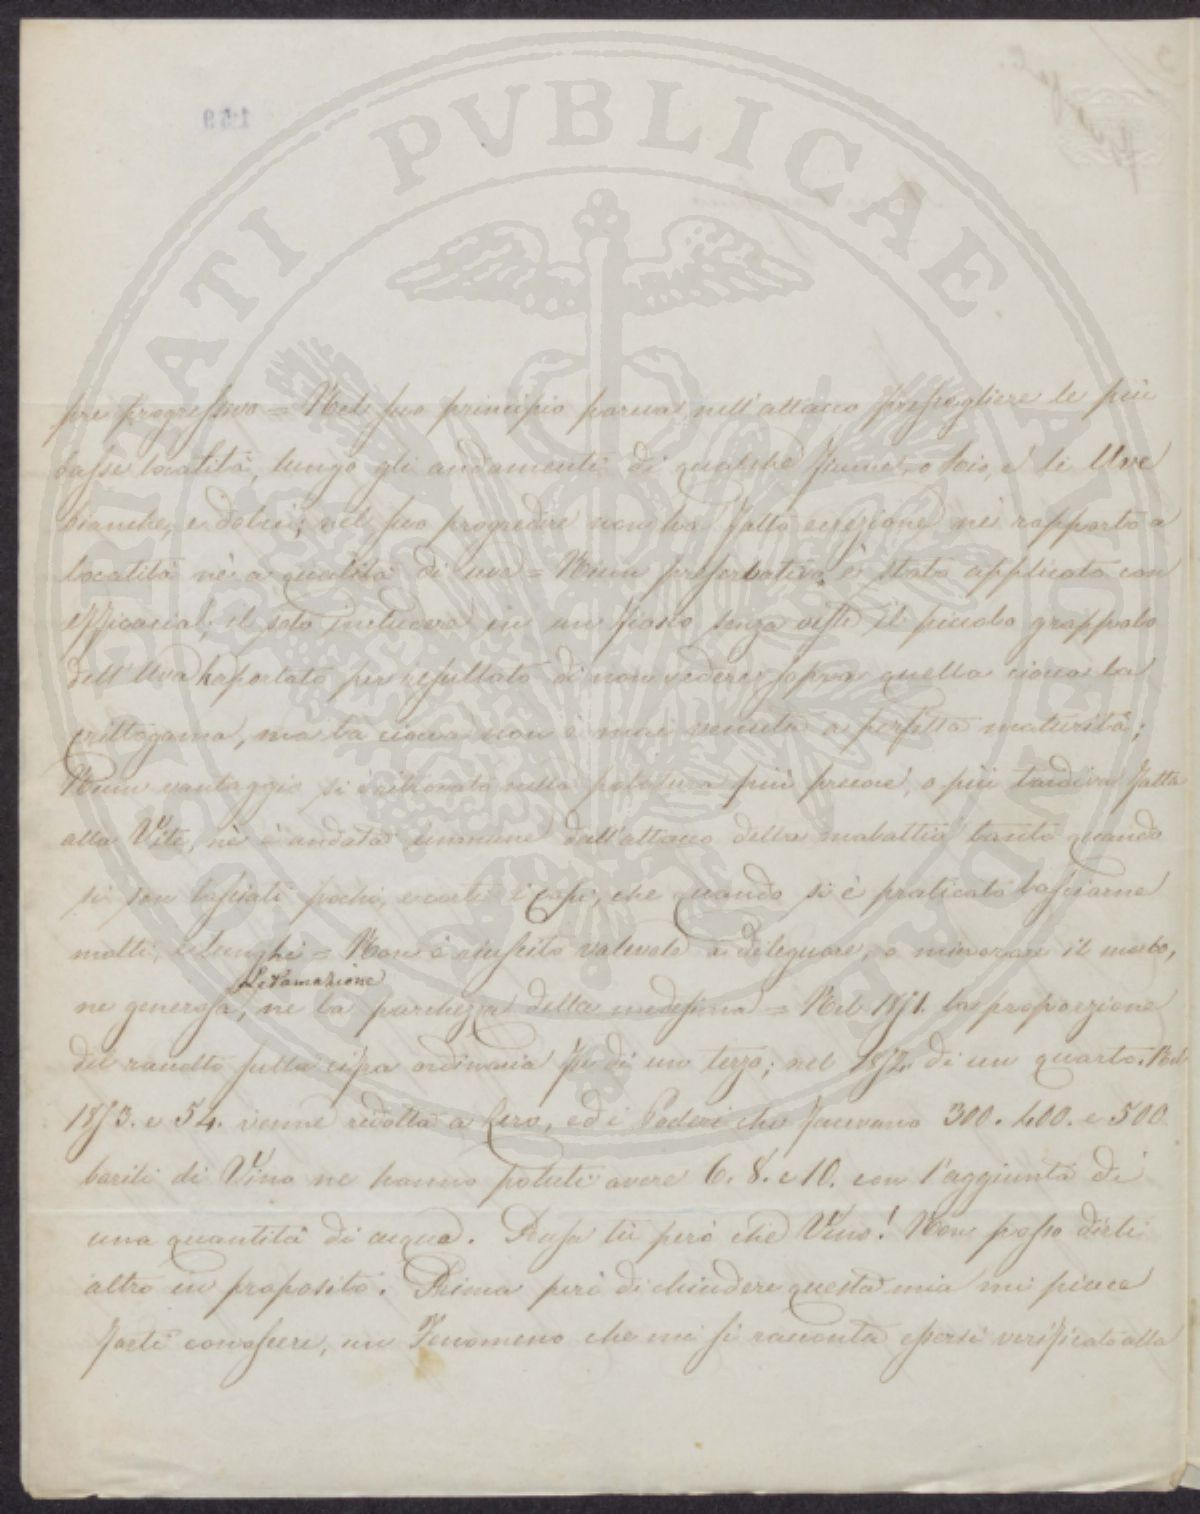 PVBLICAE
159
pre progressivo = Nel suo principio pareva nell'attacco presciegliere le più
basse località, lungo gli andamenti di qualche fiume, o Rio, e le Uve
bianche, e dolci; nel suo progredire non ha fatto eccezione nè rapporto a
località nè a qualità di uve = Niun preserbativo è stato applicato con
efficacia; il solo includere in un fiasco senza veste il piccolo grappolo
dell'Uva ha portato per resultato di non vedere sopra quella ciocca la
crittogama, ma la ciocca non è mai venuta a perfetta maturità;
Niun vantaggio si è ritrovato nella potatura più precoce, o più tardiva fatta
alla Vite, nè è andata immune dall'attacco della malattia tanto quando
si son lasciati pochi, e corti i capi, che quando si è praticato lasciarne
molti, e lunghi = Non è riuscito valevole a dileguare, o minorare il male,
Letamazione
ne generosa, ne la parchezza della medesima = Nel 1851. la proporzione
del raccolto sulla cifra ordinaria fu di un terzo; nel 1852. di un quarto. Nel
1853. e 54. venne ridotta a Zero, ed i Poderi che facevano 300. 400. e 500
barili di Vino ne hanno potuti avere 6. 8. e 10. con l'aggiunta di
una quantità di acqua. Pensa tu però che Vino! Non posso dirti
altro in proposito. Prima però di chiudere questa mia mi piace
farti conoscere, un Fenomeno che mi si racconta essersi verificato alla